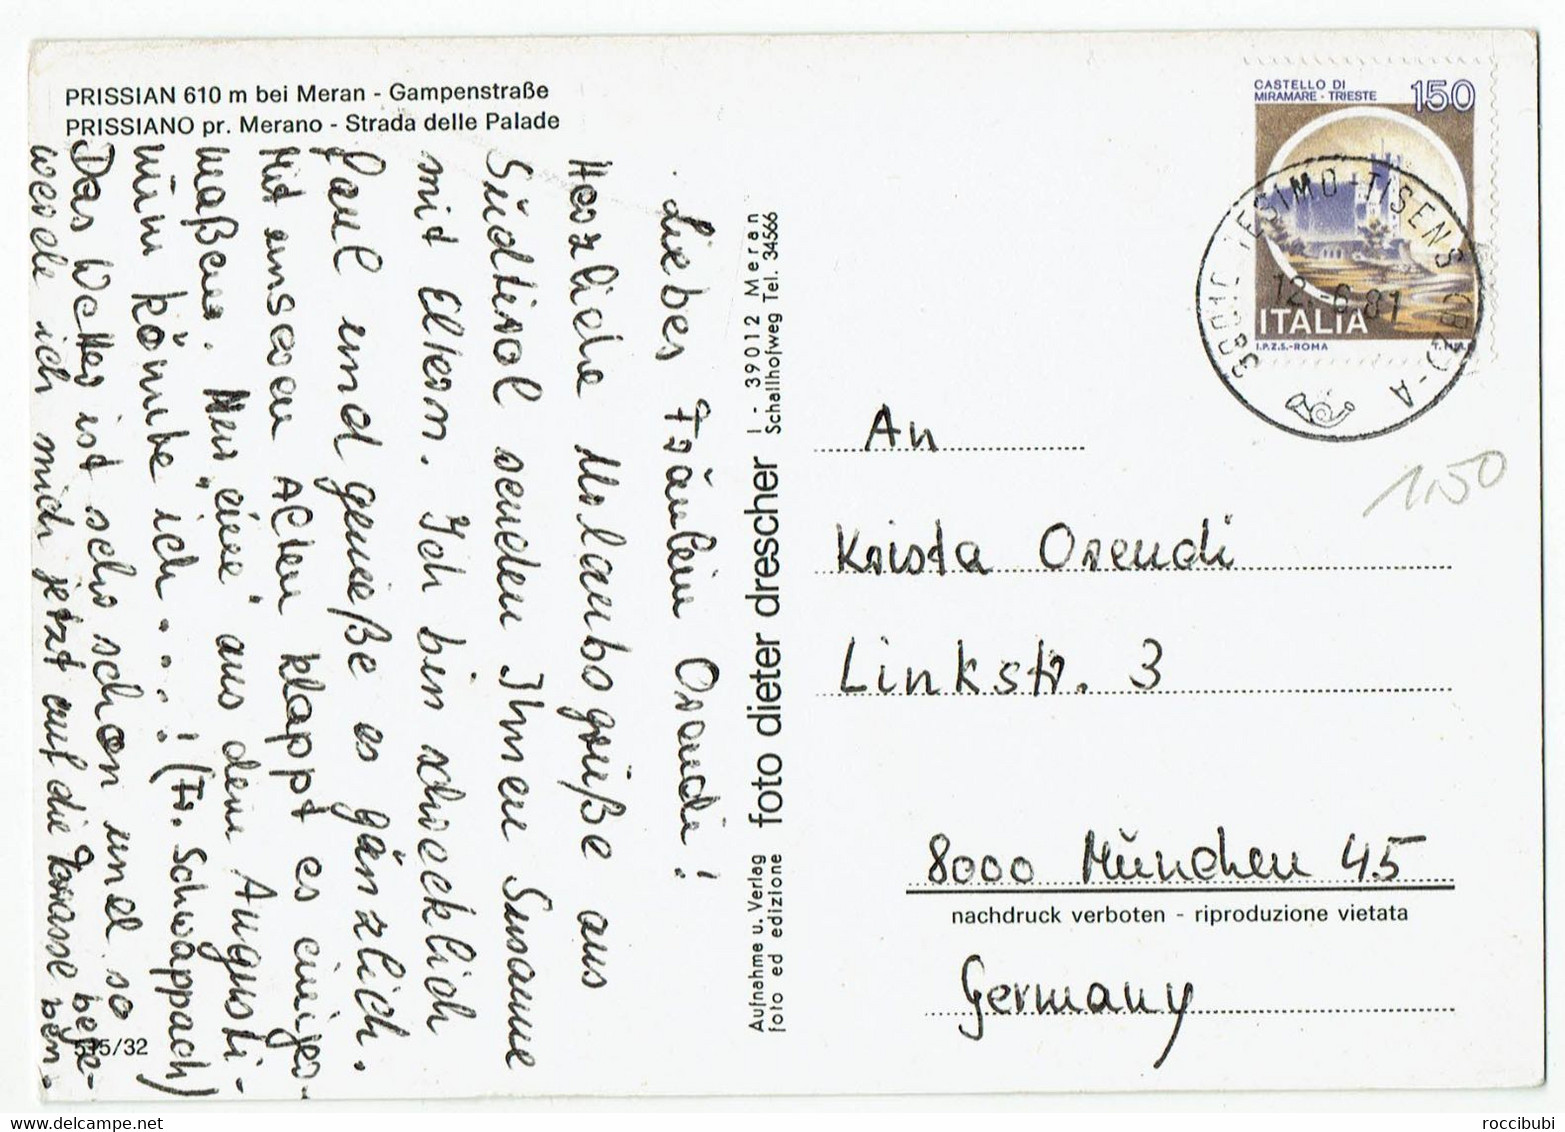 PRISSIAN 610 m bei Meran - Gampenstraße
PRISSIANO pr. Merano - Strada delle Palade
Liebes Fräulein Orendi!
Herzliche Urlaubsgrüße aus
Südtirol senden Ihnen Susanne
mit Eltern. Ich bin schrecklich
faul und genieße es gänzlich.
Mit unseren Alten klappt es einiger-
maßen. Nur "eine" aus dem Augusti-
num könnte ich ....! (Fr. Schwappach)
Das Wetter ist sehr schön und so
werde ich mich jetzt auf die Terasse bege-
ben.
515/32
Aufnahme u. Verlag
foto ed edizione
foto dieter drescher
I - 39012 Meran
Schallhofweg Tel. 34566
CASTELLO DI
MIRAMARE - TRIESTE
150
ITALIA
I.P.Z.S.-ROMA
39010 TESIMO-TISENS (BZ)-A
12.-6.81
1,50
An
Krista Orendi
Linkstr. 3
8000 München 45
nachdruck verboten - riproduzione vietata
Germany
roccibubi